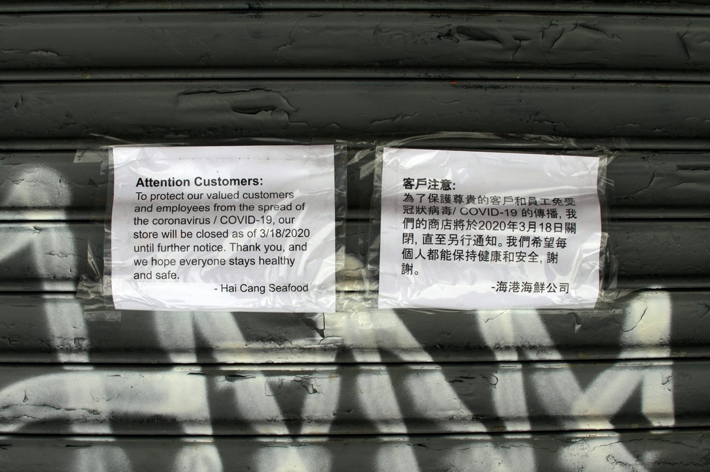 Attention Customers:
To protect our valued customers
and employees from the spread of
the coronavirus / COVID-19, our
store will be closed as of 3/18/2020
until further notice. Thank you, and
we hope everyone stays healthy
and safe.
- Hai Cang Seafood
客戶注意:
為了保護尊貴的客戶和員工免受
冠狀病毒/ COVID-19 的傳播, 我
們的商店將於2020年3月18日關
閉, 直至另行通知。我們希望每
個人都能保持健康和安全, 謝
謝。
-海港海鮮公司